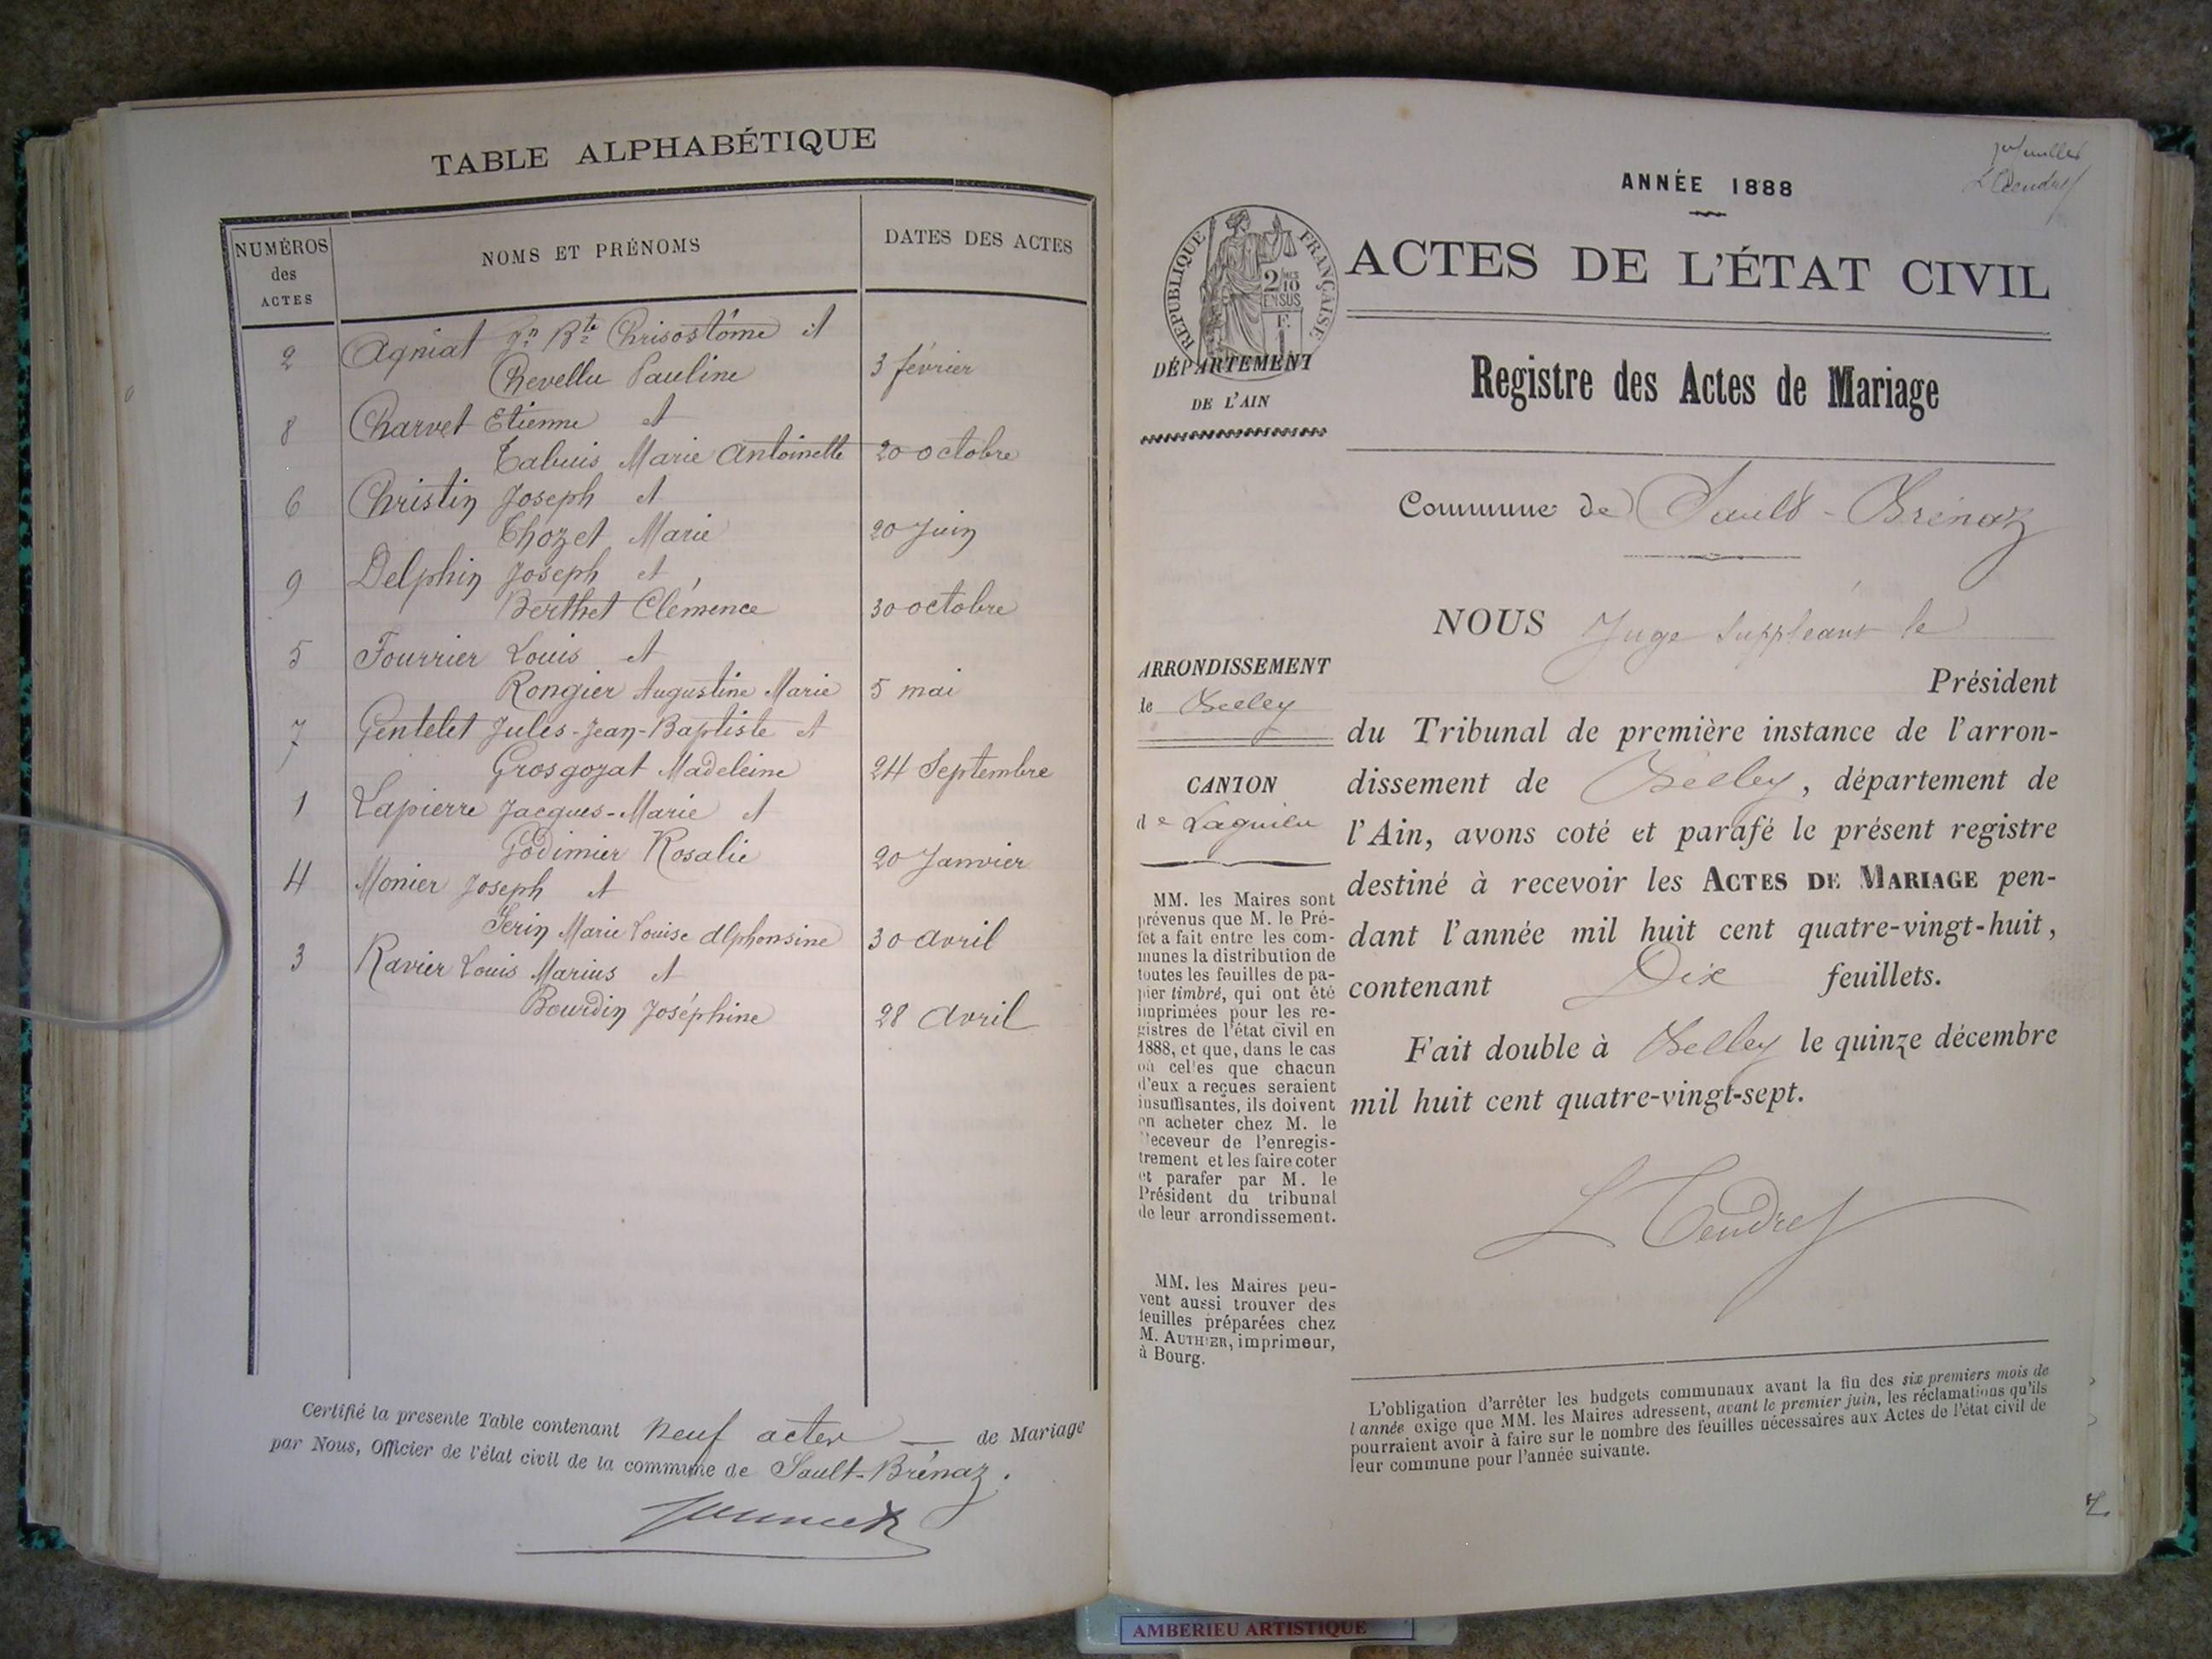 TABLE ALPHABÉTIQUE
NUMÉROS
des
ACTES
NOMS ET PRÉNOMS
DATES DES ACTES
2 Agniat Jn Bte Chrisostôme et
Chevellu Pauline 3 février
8 Charvet Etienne et
Tabuis Marie Antoinette 20 octobre
6 Christin Joseph et
Thozet Marie 20 Juin
9 Delphin Joseph et
Berthet Clémence 30 octobre
5 Fourrier Louis et
Rongier Augustine Marie 5 mai
7 Gentelet Jules-Jean-Baptiste et
Grosgozat Madeleine 24 Septembre
1 Lapierre Jacques-Marie et
Godimier Rosalie 20 Janvier
4 Monier Joseph et
Serin Marie Louise Alphonsine 30 avril
3 Ravier Louis Marius et
Bourdin Joséphine 28 avril
Certifié la presente Table contenant neuf actes de Mariage
par Nous, Officier de l'état civil de la commune de Sault-Brénaz.
ANNÉE 1888
RÉPUBLIQUE FRANÇAISE
2/10
EN SUS
DÉPARTEMENT
DE L'AIN
ACTES DE L'ÉTAT CIVIL
Registre des Actes de Mariage
Commune de Sault-Brénaz
NOUS Juge Suppléant le
Président
du Tribunal de première instance de l'arron-
dissement de Belley, département de
l'Ain, avons coté et parafé le présent registre
destiné à recevoir les ACTES DE MARIAGE pen-
dant l'année mil huit cent quatre-vingt-huit,
contenant Dix feuillets.
Fait double à Belley le quinze décembre
mil huit cent quatre-vingt-sept.
L Tendret
ARRONDISSEMENT
de Belley
CANTON
de Lagnieu
MM. les Maires sont
prévenus que M. le Pré-
fet a fait entre les com-
munes la distribution de
toutes les feuilles de pa-
pier timbré, qui ont été
imprimées pour les re-
gistres de l'état civil en
1888, et que, dans le cas
où celles que chacun
d'eux a reçues seraient
insuffisantes, ils doivent
en acheter chez M. le
Receveur de l'enregis-
trement et les faire coter
et parafer par M. le
Président du tribunal
de leur arrondissement.
MM. les Maires peu-
vent aussi trouver des
feuilles préparées chez
M. AUTHIER, imprimeur,
à Bourg.
L'obligation d'arrêter les budgets communaux avant la fin des six premiers mois de
l'année exige que MM. les Maires adressent, avant le premier juin, les réclamations qu'ils
pourraient avoir à faire sur le nombre des feuilles nécessaires aux Actes de l'état civil de
leur commune pour l'année suivante.
AMBERIEU ARTISTIQUE